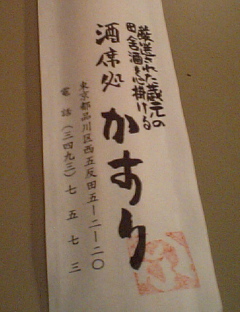 厳選された蔵元の
田舎酒を心掛ける
酒席処
かすり
東京都品川区西五反田五ー二ー二〇
電話(三四九三)七五七三